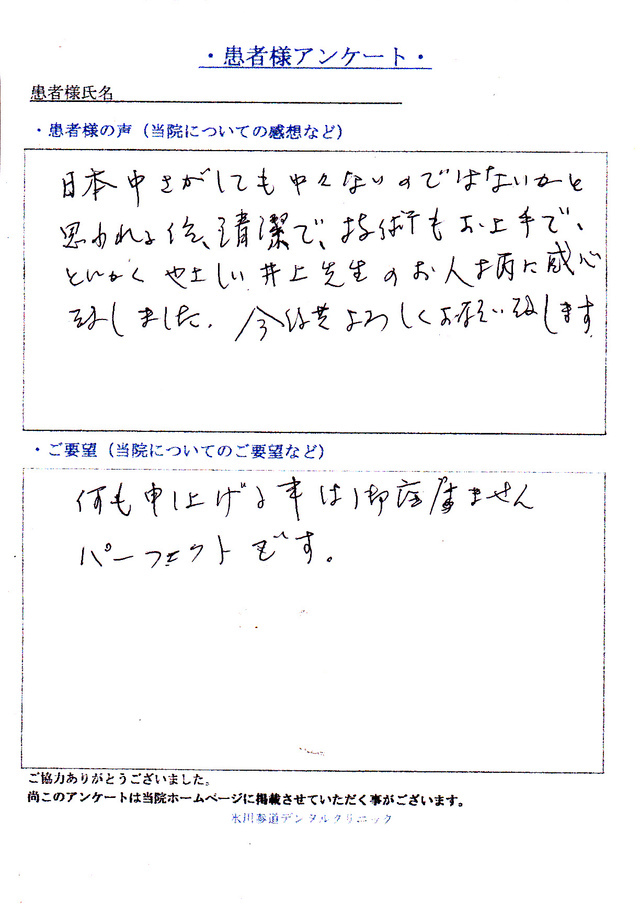 ・患者様アンケート・
患者様氏名
・患者様の声（当院についての感想など）
日本中さがしても中々ないのではないかと
思われる位、清潔で、技術もお上手で、
とにかくやさしい井上先生のお人柄に感心
致しました。今後共よろしくお願い致します
・ご要望（当院についてのご要望など）
何も申し上げる事は御座居ません
パーフェクトです。
ご協力ありがとうございました。
尚このアンケートは当院ホームページに掲載させていただく事がございます。
氷川参道デンタルクリニック